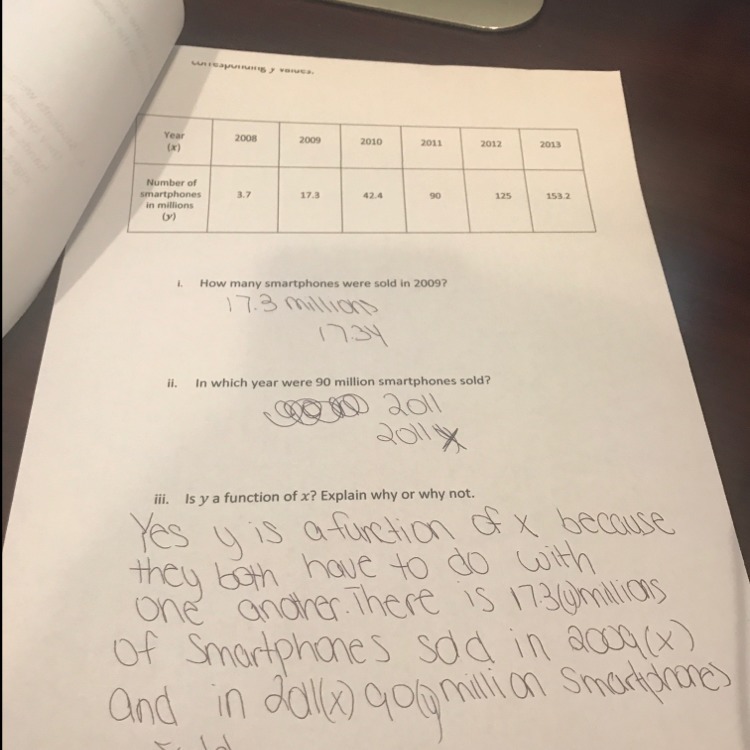 corresponding y values.
Year (x) 2008 2009 2010 2011 2012 2013
Number of smartphones in millions (y) 3.7 17.3 42.4 90 125 153.2
i. How many smartphones were sold in 2009?
17.3 millions
17.3y
ii. In which year were 90 million smartphones sold?
2011
2011
iii. Is y a function of x? Explain why or why not.
Yes y is a function of x because
they both have to do with
one another. There is 17.3(y) millions
of smartphones sold in 2009(x)
and in 2011(x) 90(y) million smartphones